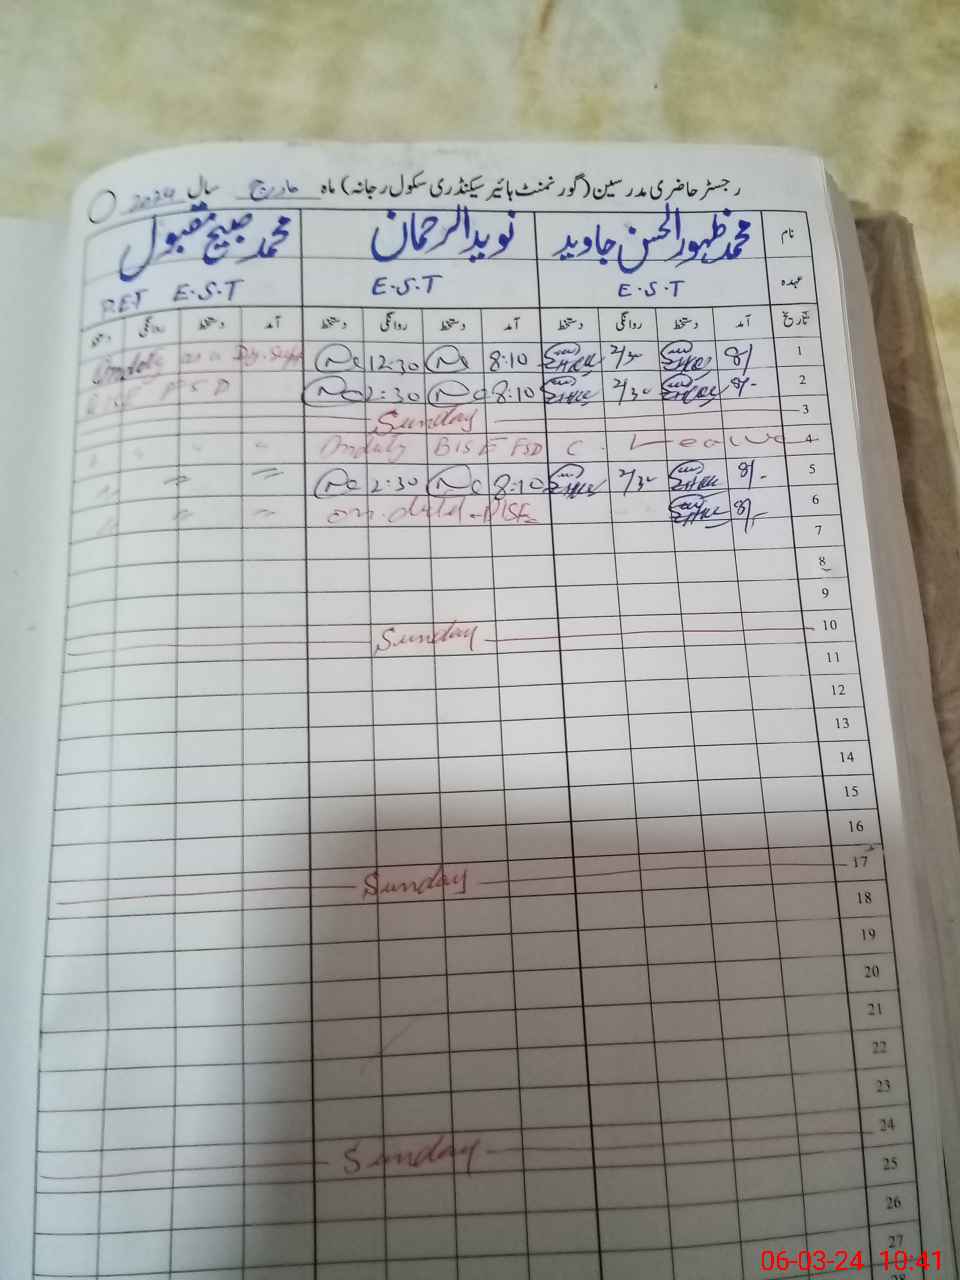 رجسٹر حاضری مدرسین (گورنمنٹ ہائیر سیکنڈری سکول رجانہ) ماہ مارچ سال 2024
نام محمد ظہور الحسن جاوید نوید الرحمان محمد صبیح مقبول
عہدہ E.S.T E.S.T P.E.T E.S.T
تاریخ آمد دستخط روانگی دستخط آمد دستخط روانگی دستخط آمد دستخط روانگی دستخط
1 8/ 2/30 8:10 12:30 Onduty as a
2 8/- 2/30 8:10 2:30 BISE FSD
3 Sunday
4 C. Leave Onduty BISE FSD " "
5 8/- 2/30 8:10 2:30 " "
6 8/- on. BISE " "
7
8
9
10 Sunday
11
12
13
14
15
16
17 Sunday
18
19
20
21
22
23
24 Sunday
25
26
27
06-03-24 10:41